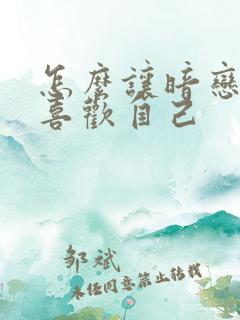 怎麼讓暗戀
喜歡自己
邹斌
未经同意禁止转载